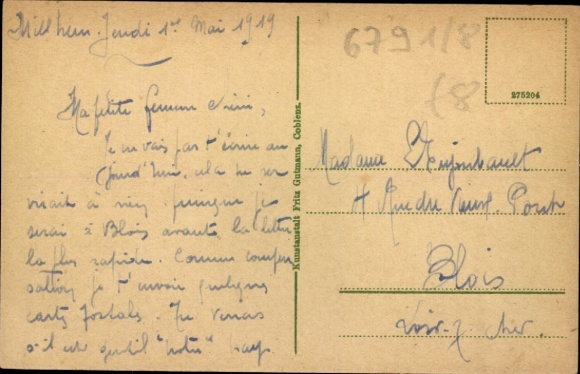 Millheim. Jeudi 1er Mai 1919
Ma petite femme chérie,
Je ne vais pas t'écrire au
jourd'hui, cela ne ser
virait à rien puisque je
serai à Blois avant la lettre
la plus rapide. Comme compen
sation je t'envoie quelques
cartes postales. Tu verras
s'il est gentil "notre" pays.
Kunstanstalt Fritz Gutmann, Coblenz.
6791/8
(8
275204
Madame
4 Rue du Vieux Pont
Blois
Loir-et-Cher.